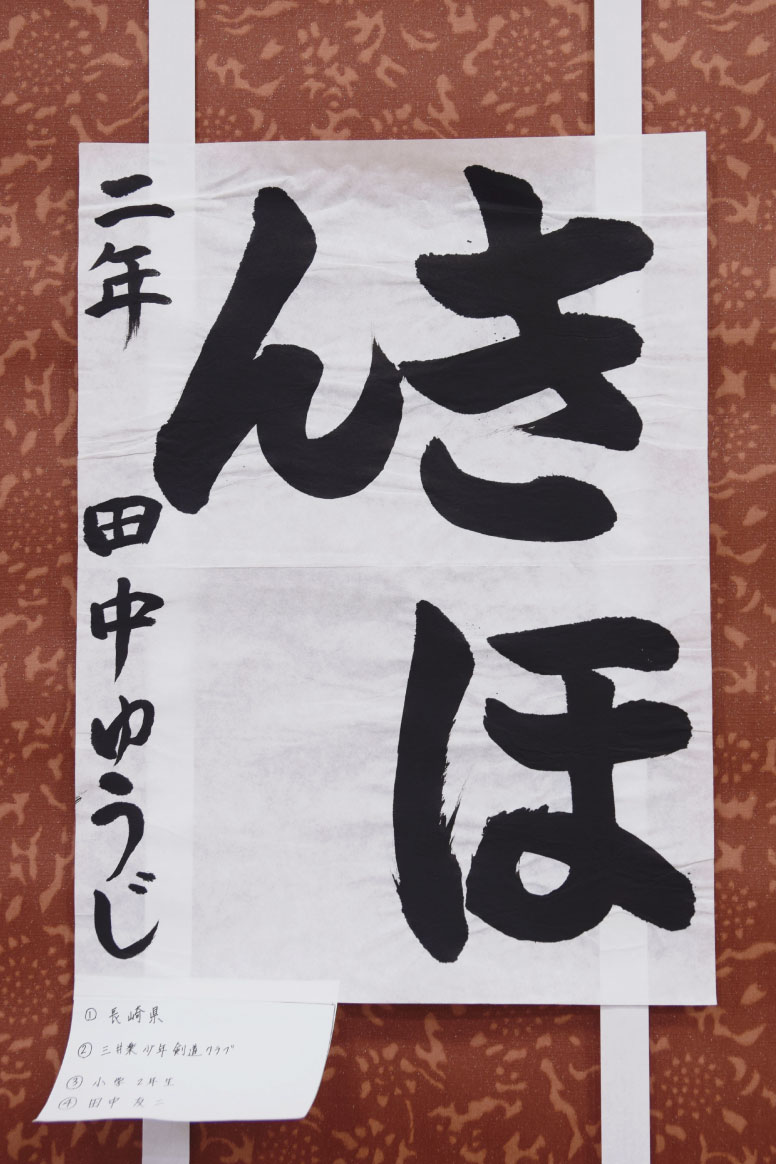 きほ
ん
二年 田中ゆうじ
① 長崎県
② 三井楽少年剣道クラブ
③ 小学2年生
④ 田中友二